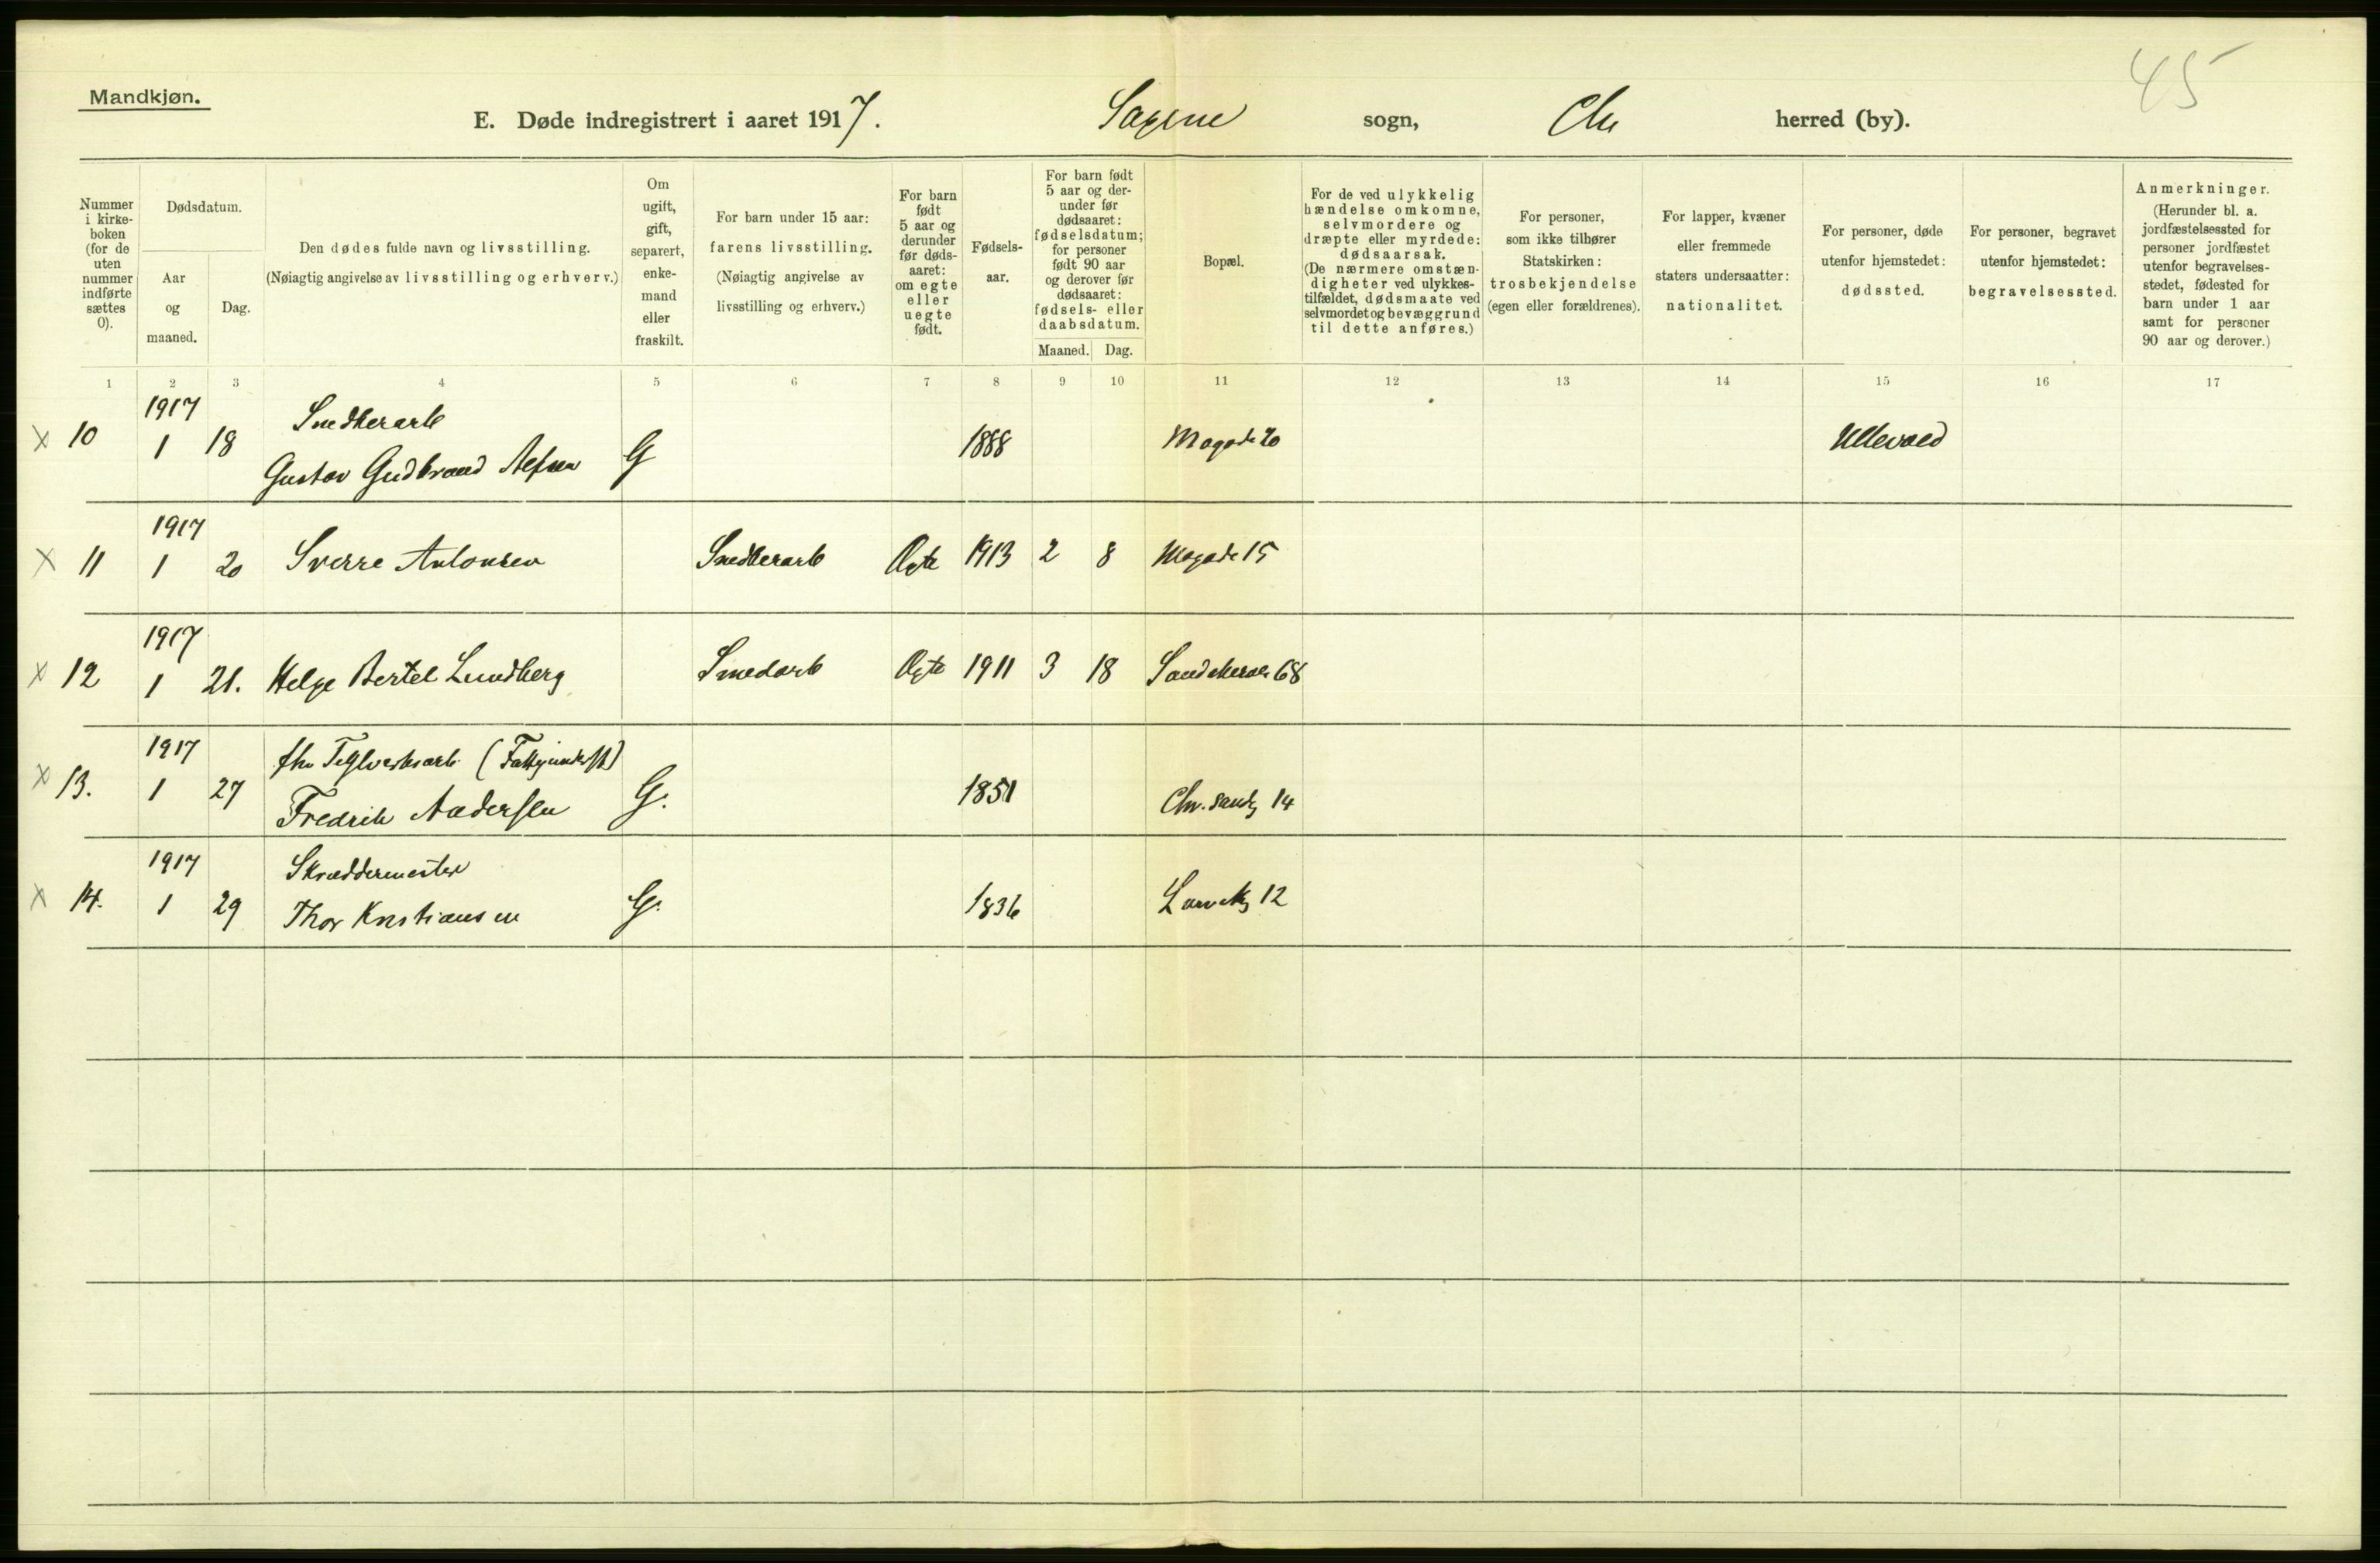 45
Mandkjøn.
E. Døde indregistrert i aaret 1917. Sagene sogn, Chr herred (by).
Nummer i kirke-boken (for de uten nummer indførte sættes 0).
Dødsdatum.
Aar og maaned.
Dag.
Den dødes fulde navn og livsstilling.
(Nøiagtig angivelse av livsstilling og erhverv.)
Om ugift, gift, separert, enke-mand eller fraskilt.
For barn under 15 aar:
farens livsstilling.
(Nøiagtig angivelse av livsstilling og erhverv.)
For barn født 5 aar og derunder før døds-aaret: om egte eller uegte født.
Fødsels-aar.
For barn født 5 aar og der-under før dødsaaret: fødselsdatum; for personer født 90 aar og derover før dødsaaret: fødsels- eller daabsdatum.
Maaned. Dag.
Bopæl.
For de ved ulykkelig hændelse omkomne, selvmordere og dræpte eller myrdede: dødsaarsak.
(De nærmere omstæn-digheter ved ulykkes-tilfældet, dødsmaate ved selvmordet og bevæggrund til dette anføres.)
For personer, som ikke tilhører Statskirken: trosbekjendelse (egen eller forældrenes).
For lapper, kvæner eller fremmede staters undersaatter: nationalitet.
For personer, døde utenfor hjemstedet: dødssted.
For personer, begravet utenfor hjemstedet: begravelsessted.
Anmerkninger.
(Herunder bl. a. jordfæstelsessted for personer jordfæstet utenfor begravelses-stedet, fødested for barn under 1 aar samt for personer 90 aar og derover.)
1 2 3 4 5 6 7 8 9 10 11 12 13 14 15 16 17
1917 Snedkerarb
x 10 1 18 Gustav Gudbrand G 1888 Mogade 20 Ullevaal
1917
x 11 1 20 Sverre Antonsen Snedkerarb Egte 1913 2 8 Mogade 15
1917
x 12 1 21. Helge Bertel Lundberg Smedarb Egte 1911 3 18 Sandakerv 68
1917 fhv Teglverksarb. (Fattigunderst)
x 13. 1 27 Fredrik Andersen G. 1851 Chr.sandg 14
1917 Skræddermester
x 14. 1 29 Thor Kristiansen G. 1836 Larvikg 12